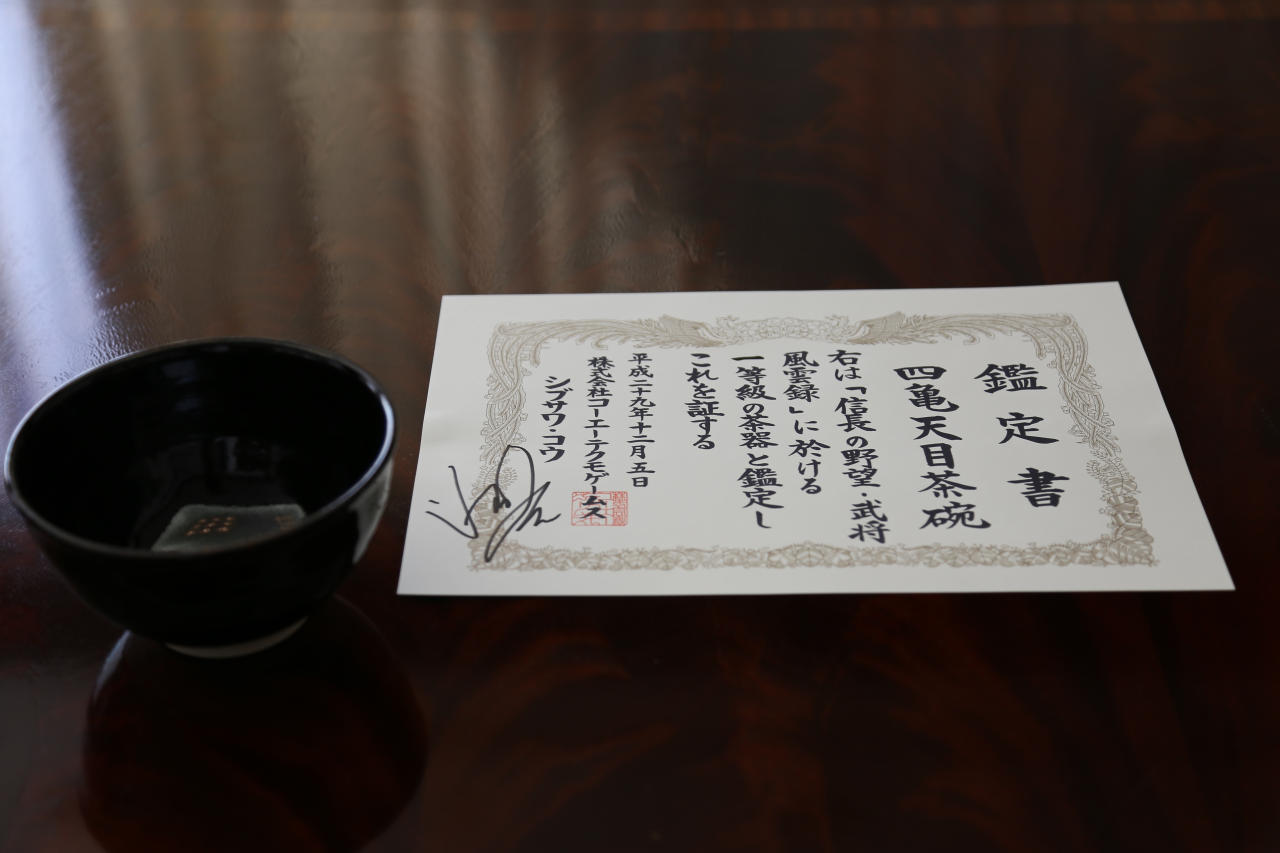 鑑定書
四亀天目茶碗
右は「信長の野望・武将
風雲録」に於ける
一等級の茶器と鑑定し
これを証する
平成二十九年十二月五日
株式会社コーエーテクモゲームス
シブサワ・コウ